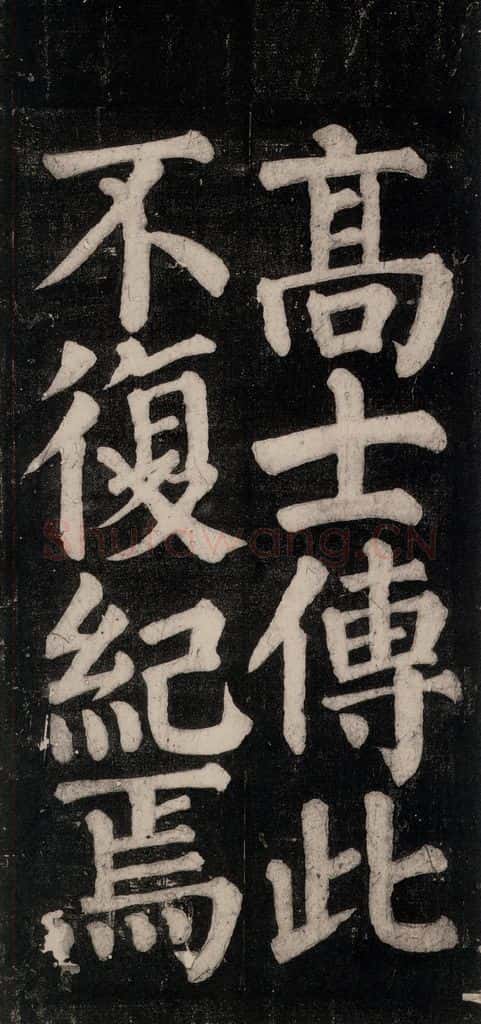 高士傳此
不復紀焉
Shufawang.CN